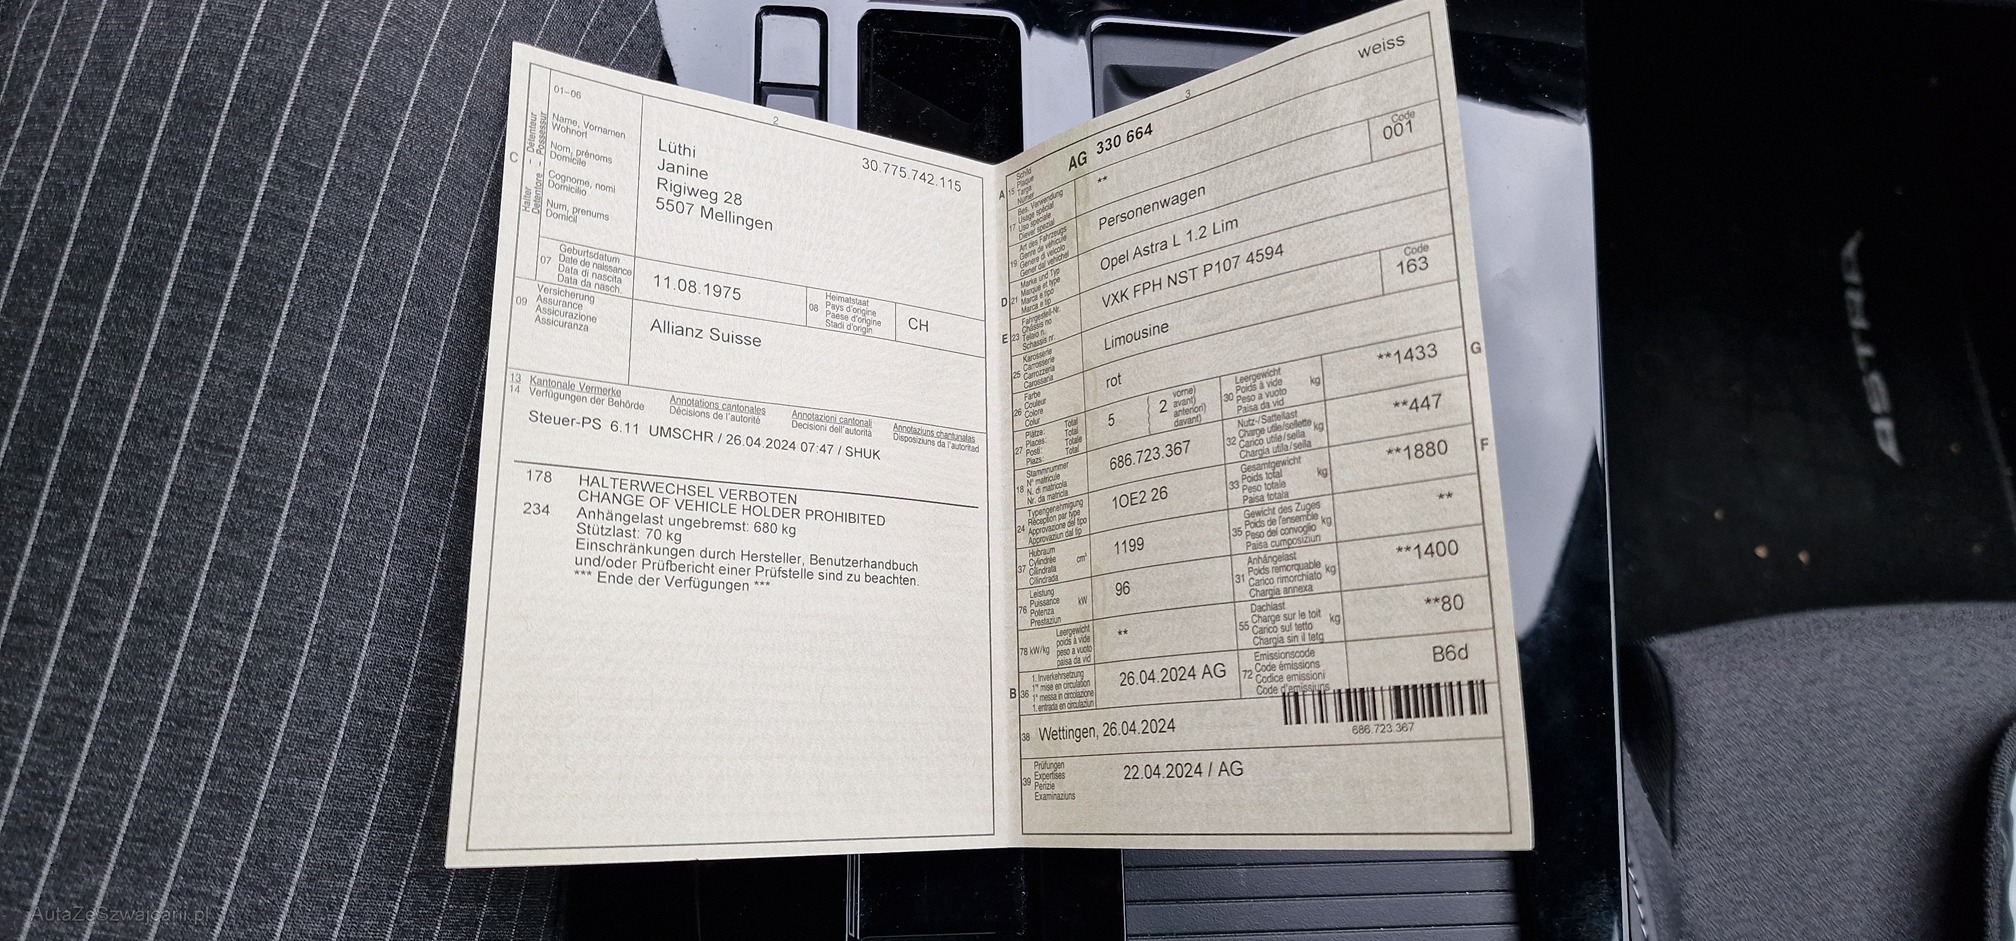 2
C
Halter – Détenteur
Detentore – Possessur
01–06
Name, Vornamen
Wohnort
Nom, prénoms
Domicile
Cognome, nomi
Domicilio
Num, prenums
Domicil
Lüthi
Janine
Rigiweg 28
5507 Mellingen
30.775.742.115
07
Geburtsdatum
Date de naissance
Data di nascita
Data da nasch.
11.08.1975
08
Heimatstaat
Pays d'origine
Paese d'origine
Stadi d'origin
CH
09
Versicherung
Assurance
Assicurazione
Assicuranza
Allianz Suisse
13 Kantonale Vermerke
14 Verfügungen der Behörde
Annotations cantonales
Décisions de l'autorité
Annotazioni cantonali
Decisioni dell'autorità
Annotaziuns chantunalas
Disposiziuns da l'autoritad
Steuer-PS 6.11 UMSCHR / 26.04.2024 07:47 / SHUK
178 HALTERWECHSEL VERBOTEN
CHANGE OF VEHICLE HOLDER PROHIBITED
234 Anhängelast ungebremst: 680 kg
Stützlast: 70 kg
Einschränkungen durch Hersteller, Benutzerhandbuch
und/oder Prüfbericht einer Prüfstelle sind zu beachten.
*** Ende der Verfügungen ***
3
weiss
A 15
Schild
Plaque
Targa
Numer
AG 330 664
17
Bes. Verwendung
Usage spécial
Uso speciale
Diever spezial
**
19
Art des Fahrzeugs
Genre de véhicule
Genere di veicolo
Gener dal vehichel
Personenwagen
Code
001
D 21
Marke und Typ
Marque et type
Marca e tipo
Marca e tip
Opel Astra L 1.2 Lim
E 23
Fahrgestell-Nr.
Châssis no
Telaio n.
Schassis nr.
VXK FPH NST P107 4594
25
Karosserie
Carrosserie
Carrozzeria
Carossaria
Limousine
Code
163
26
Farbe
Couleur
Colore
Colur
rot
27
Plätze: Total
Places: Total
Posti: Totale
Plazs: Total
5
2
vorne)
avant)
anteriori)
davant)
18
Stammnummer
N° matricule
N. di matricola
Nr. da matricla
686.723.367
24
Typengenehmigung
Réception par type
Approvazione del tipo
Approvaziun dal tip
1OE2 26
37
Hubraum
Cylindrée
Cilindrata
Cilindrada
cm³
1199
76
Leistung
Puissance
Potenza
Prestaziun
kW
96
78 kW/kg
Leergewicht
poids à vide
peso a vuoto
paisa da vid
**
B 36
1. Inverkehrsetzung
1re mise en circulation
1a messa in circolazione
1. entrada en circulaziun
26.04.2024 AG
G
30
Leergewicht
Poids à vide
Peso a vuoto
Paisa da vid
kg
**1433
32
Nutz-/Sattellast
Charge utile/sellette
Carico utile/sella
Chargia utila/sella
kg
**447
F
33
Gesamtgewicht
Poids total
Peso totale
Paisa totala
kg
**1880
35
Gewicht des Zuges
Poids de l'ensemble
Peso del convoglio
Paisa cumposiziun
kg
**
31
Anhängelast
Poids remorquable
Carico rimorchiato
Chargia annexa
kg
**1400
55
Dachlast
Charge sur le toit
Carico sul tetto
Chargia sin il tetg
kg
**80
72
Emissionscode
Code émissions
Codice emissioni
Code d'emissiuns
B6d
38 Wettingen, 26.04.2024
686.723.367
39
Prüfungen
Expertises
Perizie
Examinaziuns
22.04.2024 / AG
ASTRA
AutaZeSzwajcarii.pl